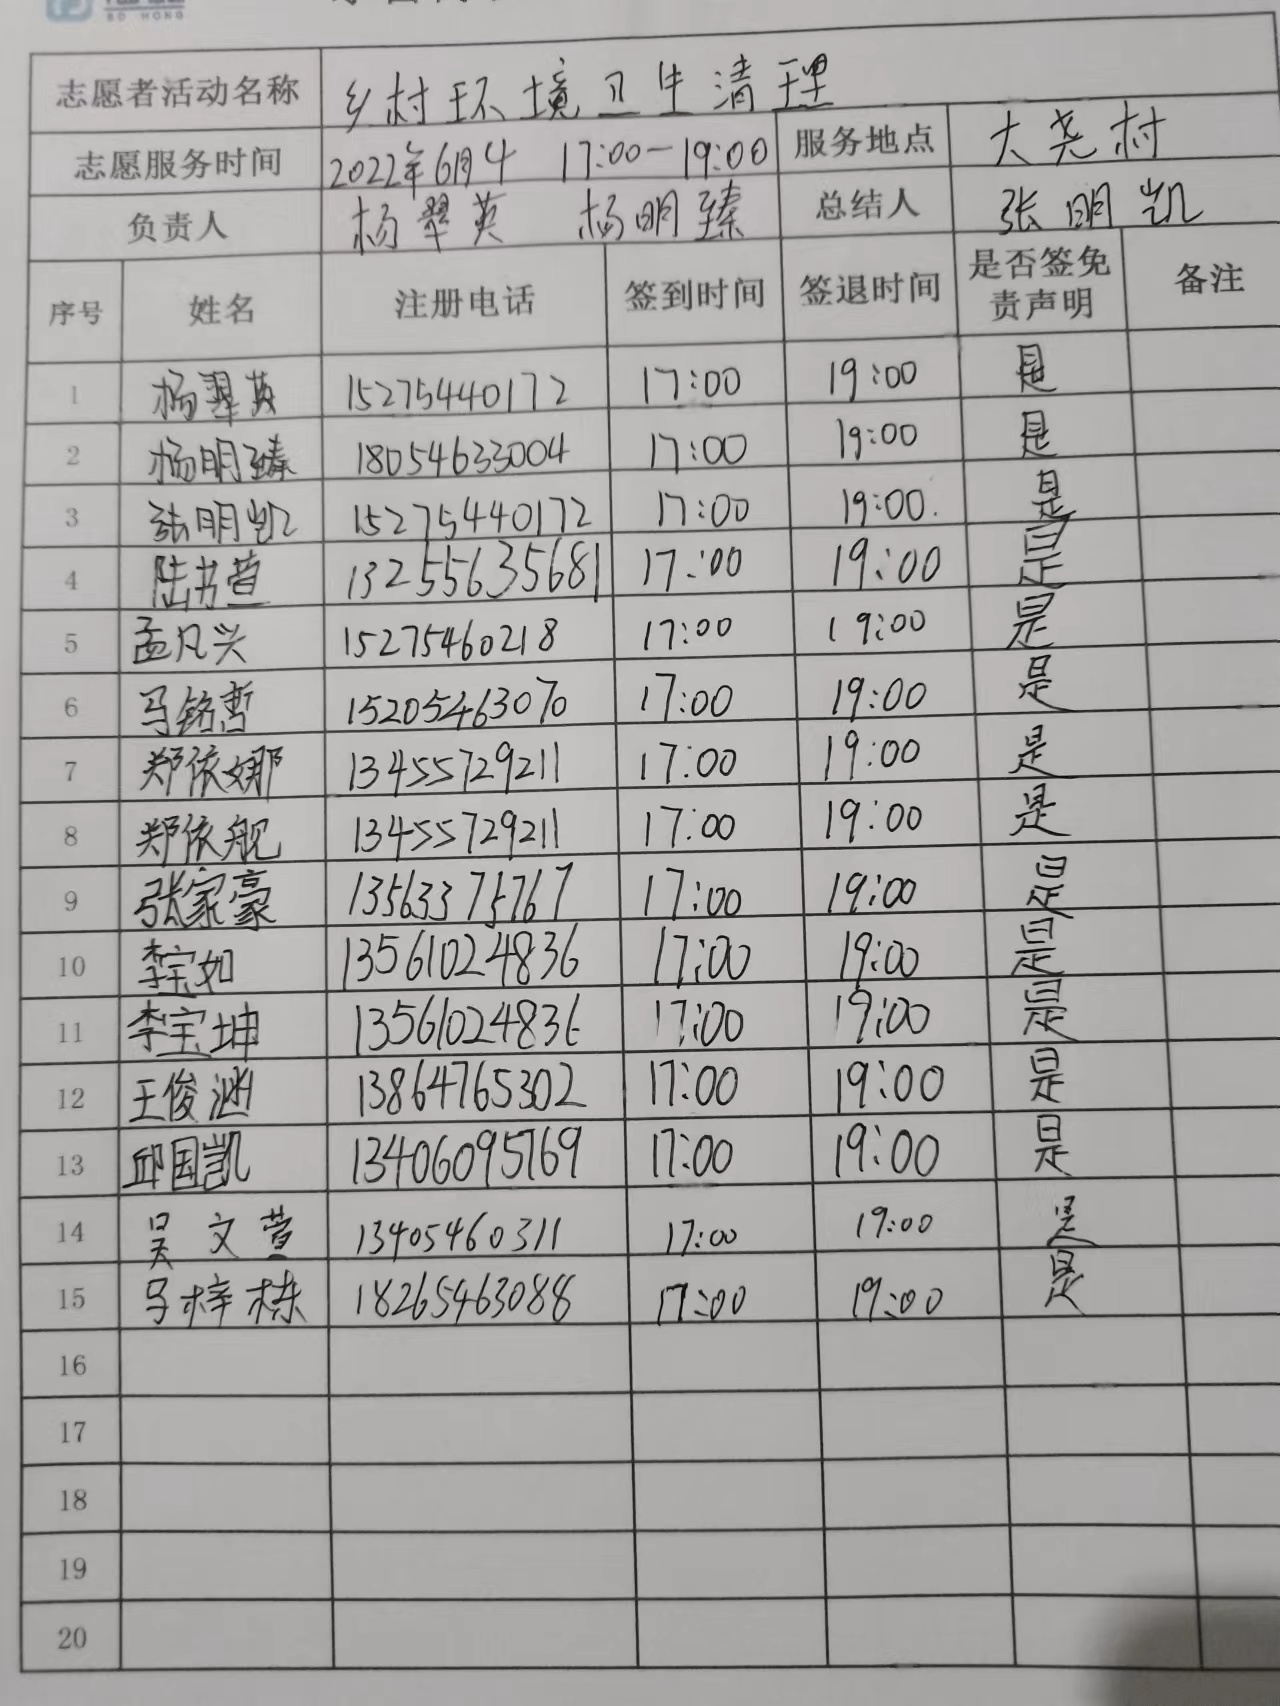 BO HONG
志愿者活动名称 乡村环境卫生清理
志愿服务时间 2022年6月4 17:00-19:00 服务地点 大尧村
负责人 杨翠英 杨明臻 总结人 张明凯
序号 姓名 注册电话 签到时间 签退时间 是否签免责声明 备注
1 杨翠英 15275440172 17:00 19:00 是
2 杨明臻 18054633004 17:00 19:00 是
3 张明凯 15275440172 17:00 19:00. 是
4 陆书萱 13255635681 17:00 19:00 是
5 孟凡兴 15275460218 17:00 19:00 是
6 马铭哲 15205463070 17:00 19:00 是
7 郑依娜 13455729211 17:00 19:00 是
8 郑依舰 13455729211 17:00 19:00 是
9 张家豪 13563375767 17:00 19:00 是
10 李宝如 13561024836 17:00 19:00 是
11 李宝坤 13561024836 17:00 19:00 是
12 王俊 13864765302 17:00 19:00 是
13 邱国凯 13406095769 17:00 19:00 是
14 吴文萱 13405460311 17:00 19:00 是
15 马梓栋 18265463088 17:00 19:00 是
16
17
18
19
20